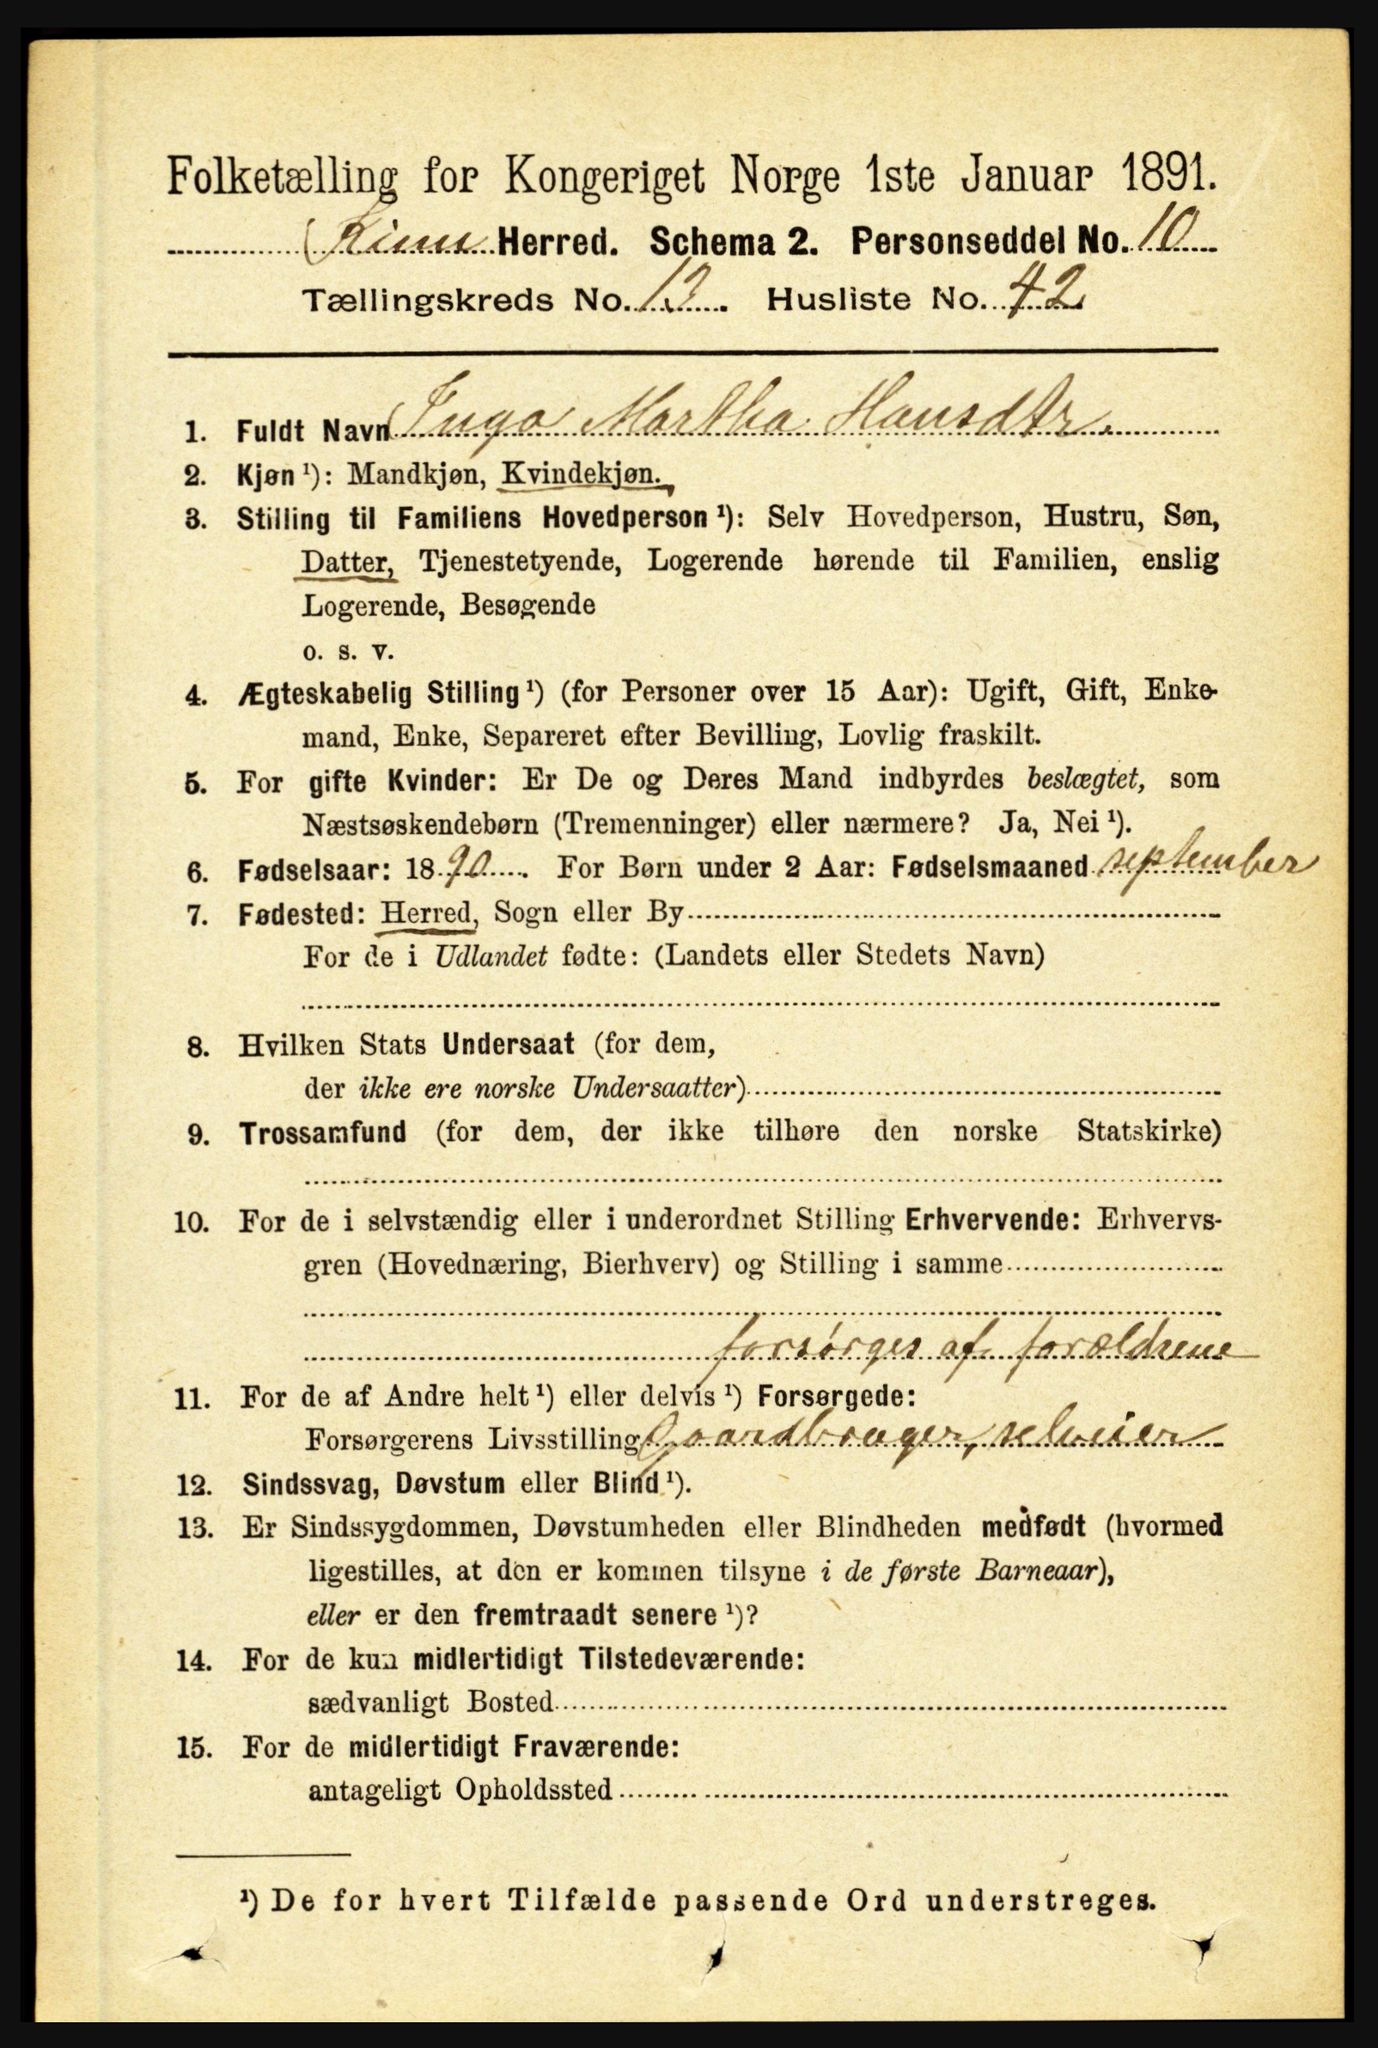 Folketælling for Kongeriget Norge 1ste Januar 1891.
Kinn Herred. Schema 2. Personseddel No. 10
Tællingskreds No. 13. Husliste No. 42
1. Fuldt Navn Inga Martha Hansdtr.
2. Kjøn¹): Mandkjøn, Kvindekjøn.
3. Stilling til Familiens Hovedperson¹): Selv Hovedperson, Hustru, Søn,
Datter, Tjenestetyende, Logerende hørende til Familien, enslig
Logerende, Besøgende
o. s. v.
4. Ægteskabelig Stilling¹) (for Personer over 15 Aar): Ugift, Gift, Enke-
mand, Enke, Separeret efter Bevilling, Lovlig fraskilt.
5. For gifte Kvinder: Er De og Deres Mand indbyrdes beslægtet, som
Næstsøskendebørn (Tremenninger) eller nærmere? Ja, Nei¹).
6. Fødselsaar: 1890. For Børn under 2 Aar: Fødselsmaaned september
7. Fødested: Herred, Sogn eller By
For de i Udlandet fødte: (Landets eller Stedets Navn)
8. Hvilken Stats Undersaat (for dem,
der ikke ere norske Undersaatter)
9. Trossamfund (for dem, der ikke tilhøre den norske Statskirke)
10. For de i selvstændig eller i underordnet Stilling Erhvervende: Erhvervs-
gren (Hovednæring, Bierhverv) og Stilling i samme
forsørges af forældrene
11. For de af Andre helt¹) eller delvis¹) Forsørgede:
Forsørgerens Livsstilling Gaardbruger, selveier
12. Sindssvag, Døvstum eller Blind¹).
13. Er Sindssygdommen, Døvstumheden eller Blindheden medfødt (hvormed
ligestilles, at den er kommen tilsyne i de første Barneaar),
eller er den fremtraadt senere¹)?
14. For de kun midlertidigt Tilstedeværende:
sædvanligt Bosted
15. For de midlertidigt Fraværende:
antageligt Opholdssted
¹) De for hvert Tilfælde passende Ord understreges.